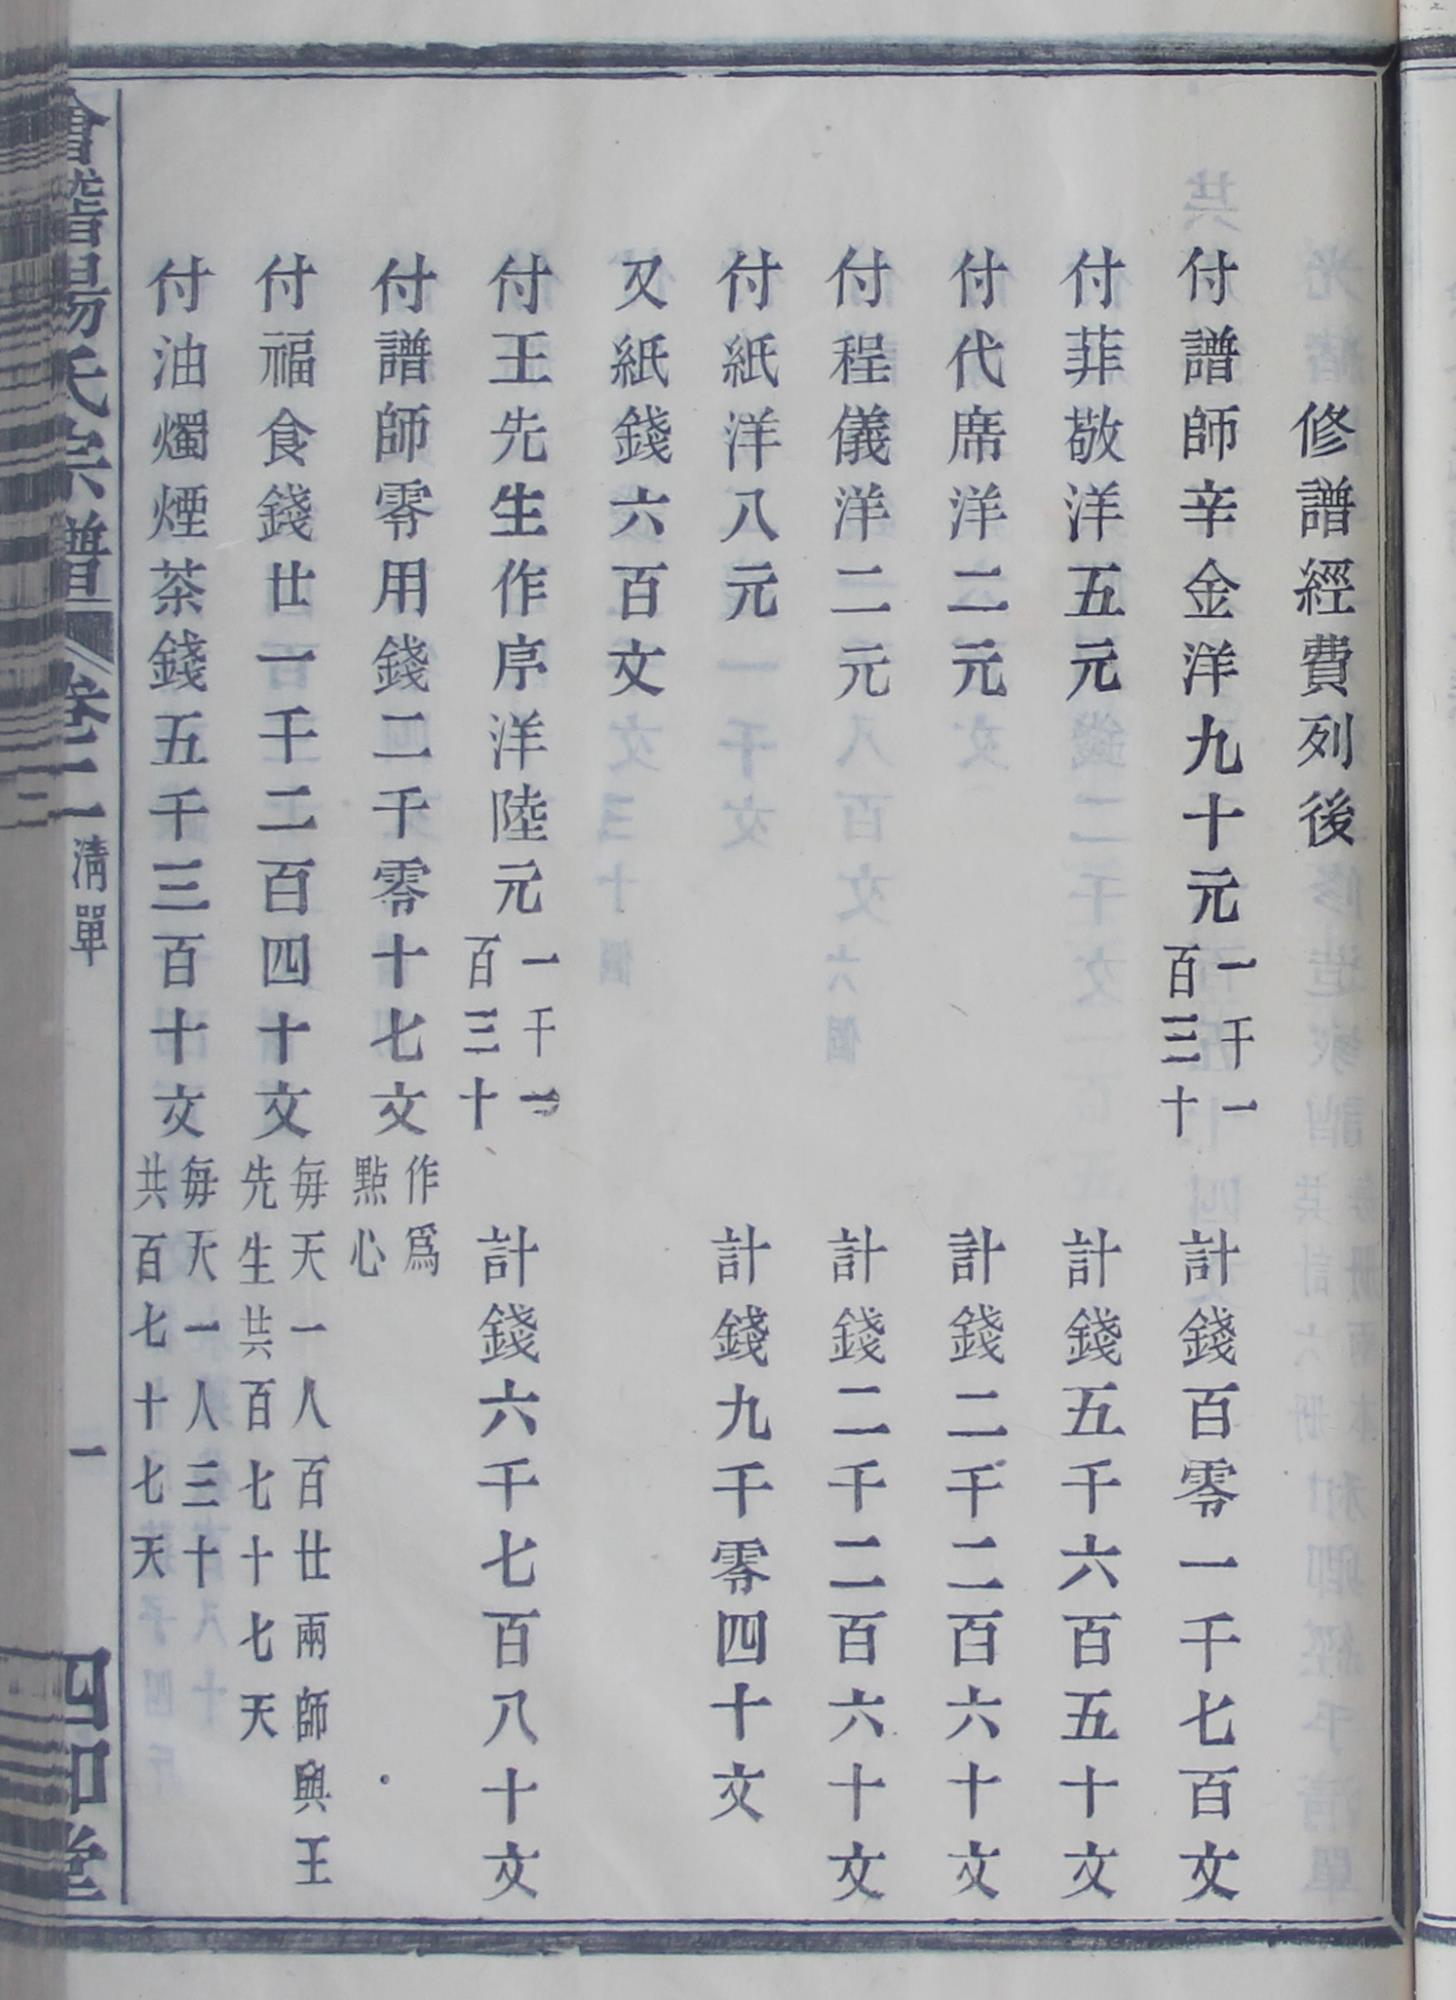 修譜經費列後
付譜師辛金洋九十元一千一百三十 計錢百零一千七百文
付菲敬洋五元 計錢五千六百五十文
付代席洋二元 計錢二千二百六十文
付程儀洋二元 計錢二千二百六十文
付紙洋八元 計錢九千零四十文
又紙錢六百文
付王先生作序洋陸元一千一百三十 計錢六千七百八十文
付譜師零用錢二千零十七文作爲點心
付福食錢廿一千二百四十文每天一人百廿兩師與王先生共百七十七天
付油燭煙茶錢五千三百十文每天一人三十共百七十七天
會稽楊氏宗譜 卷二 清單 一 四知堂